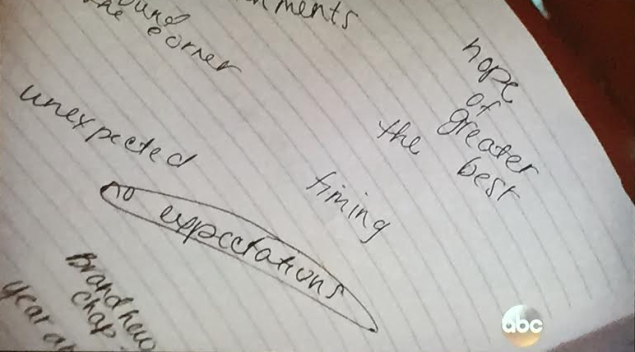 the corner
unexpected
hope
of
greater
the best
timing
no expectations
Brand new
chap
year
abc